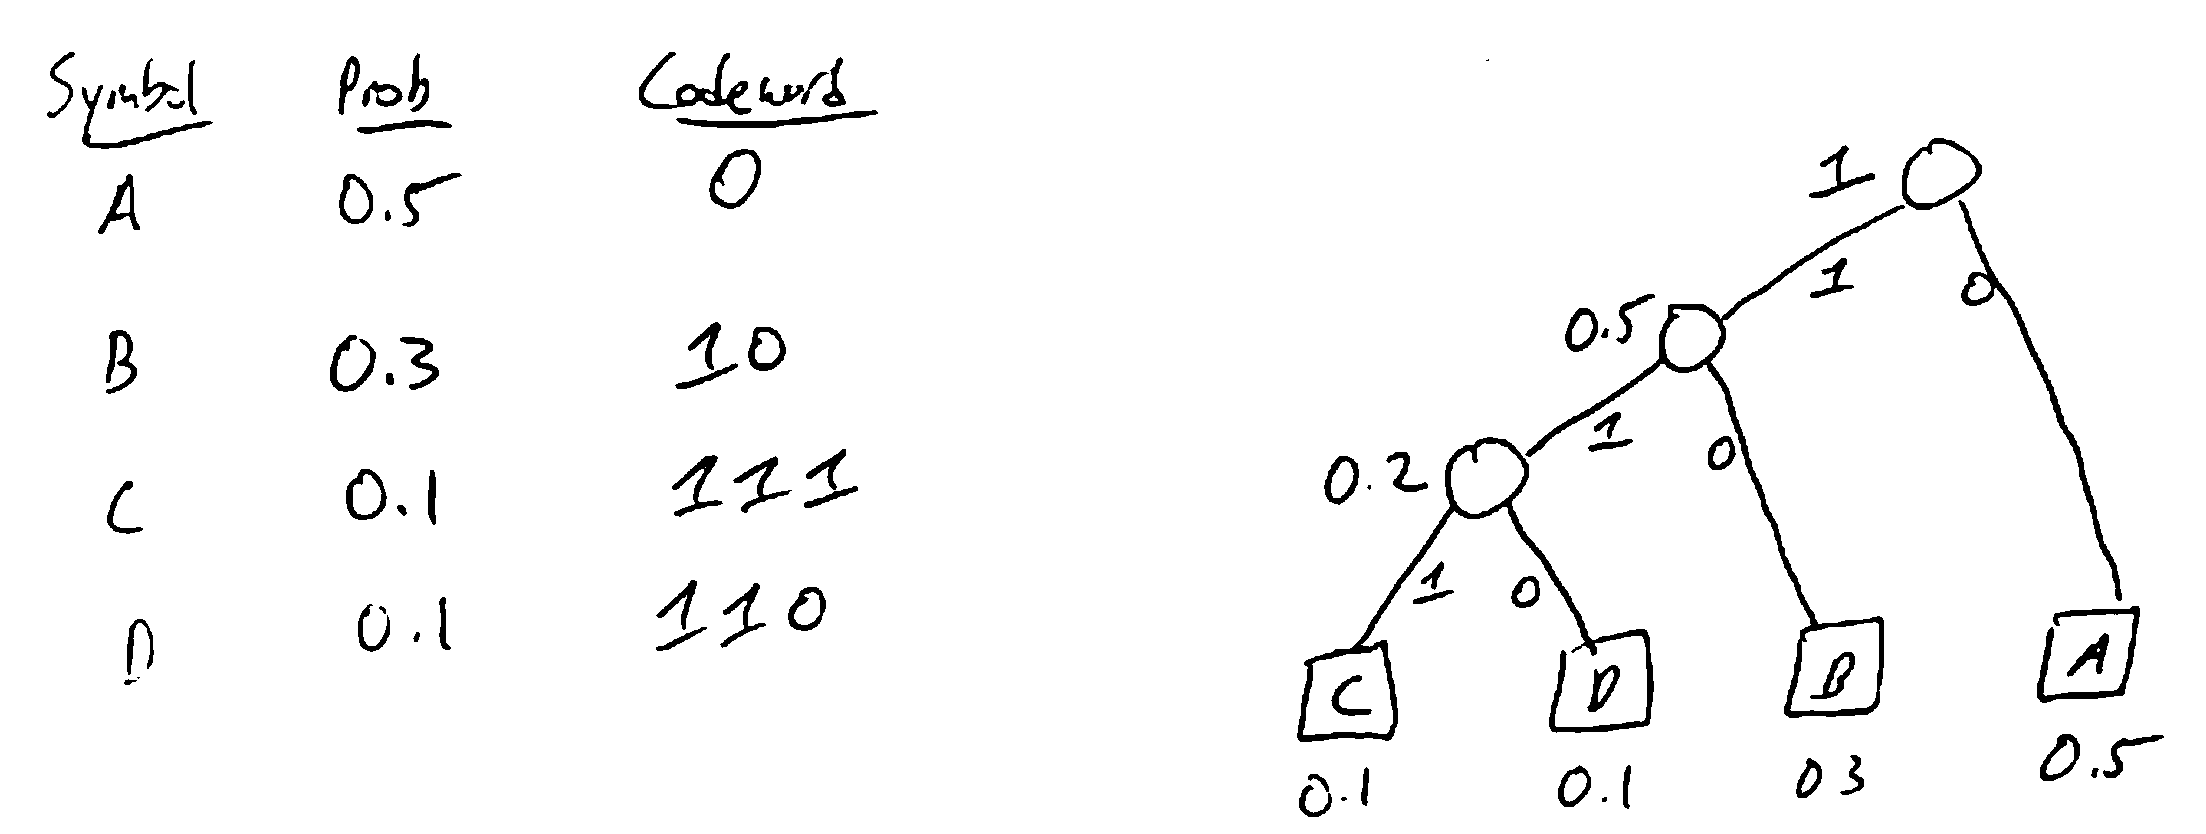 Symbol Prob Codeword
A 0.5 0
B 0.3 10
C 0.1 111
D 0.1 110
1
1 0
0.5
1 0
0.2
1 0
C D B A
0.1 0.1 03 0.5